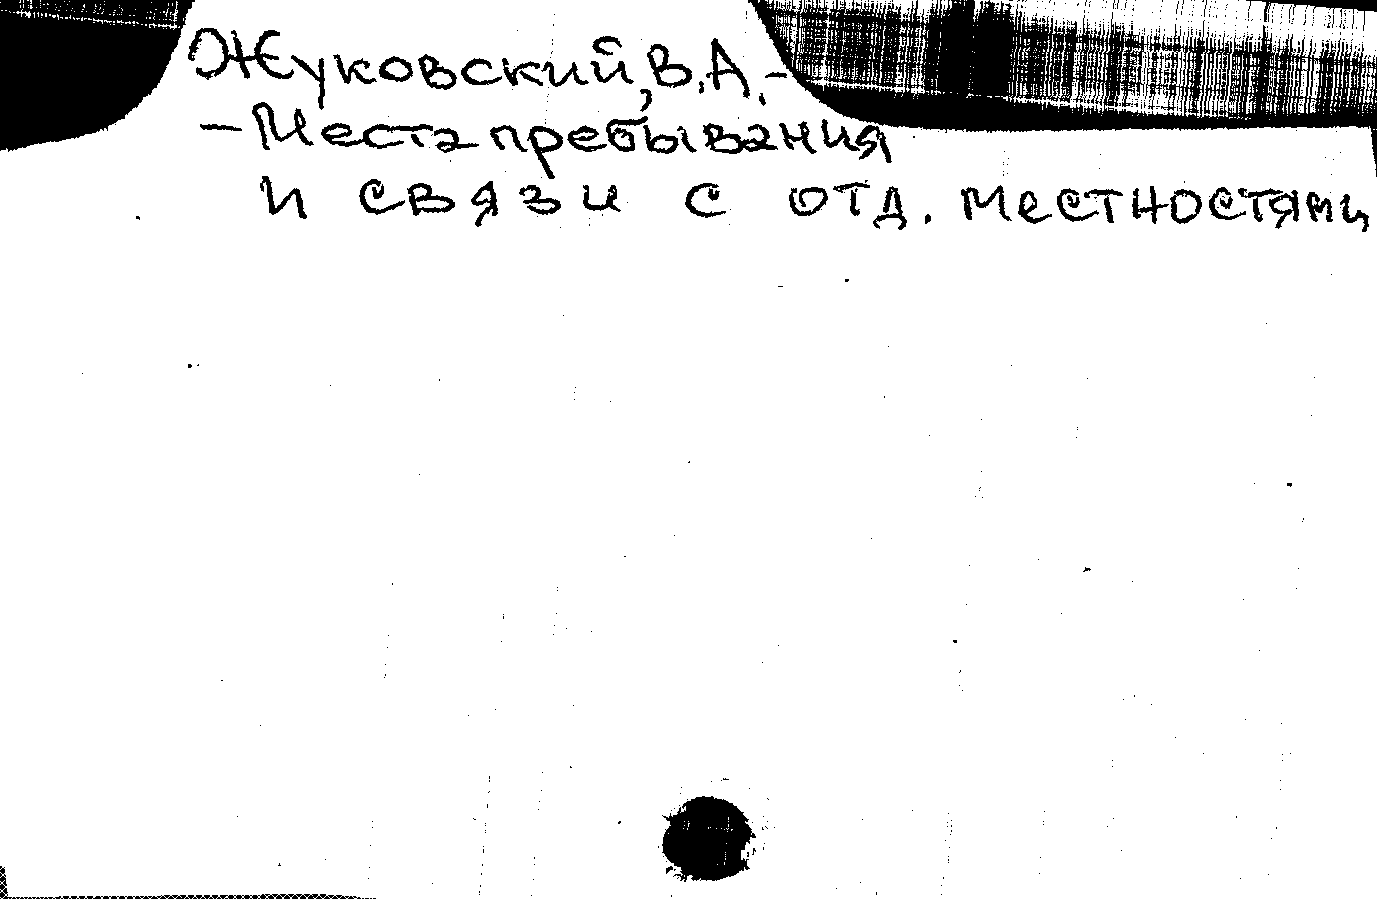 Жуковский, В.А. -
- Места пребывания
и связи с отд. местностями